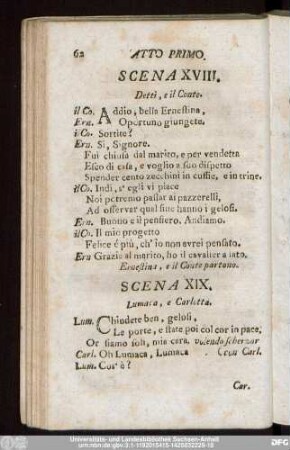 62 ATTO PRIMO.
SCENA XVIII.
Detti, e il Conte.
il Co. Addio, bella Ernestina,
Ern. Opertuno giungete.
i. Co. Sortite?
Ern. Si, Signore.
Fui chiusa dal marito, e per vendetta
Esco di casa, e voglio a suo dispetto
Spender cento zecchini in cuffie, e in trine.
il Co. Indi, s' egli vi piace
Noi potremo passar ai pazzerelli,
Ad osservar qual fine hanno i gelosi.
Ern. Buono è il pensiero. Andiamo.
il Co. Il mio progetto
Felice é più, ch' io non avrei pensato.
Ern Grazie al marito, ho il cavalier a lato.
Ernestina, e il Conte partono.
SCENA XIX.
Lumaca, e Carlotta.
Lum. Chiudete ben, gelosi,
Le porte, e state poi col cor in pace;
Or siamo soli, mia cara. volendo scherzar
Carl. Oh Lumaca, Lumaca (con Carl.
Lum. Cos' è?
Car.
Universitäts- und Landesbibliothek Sachsen-Anhalt